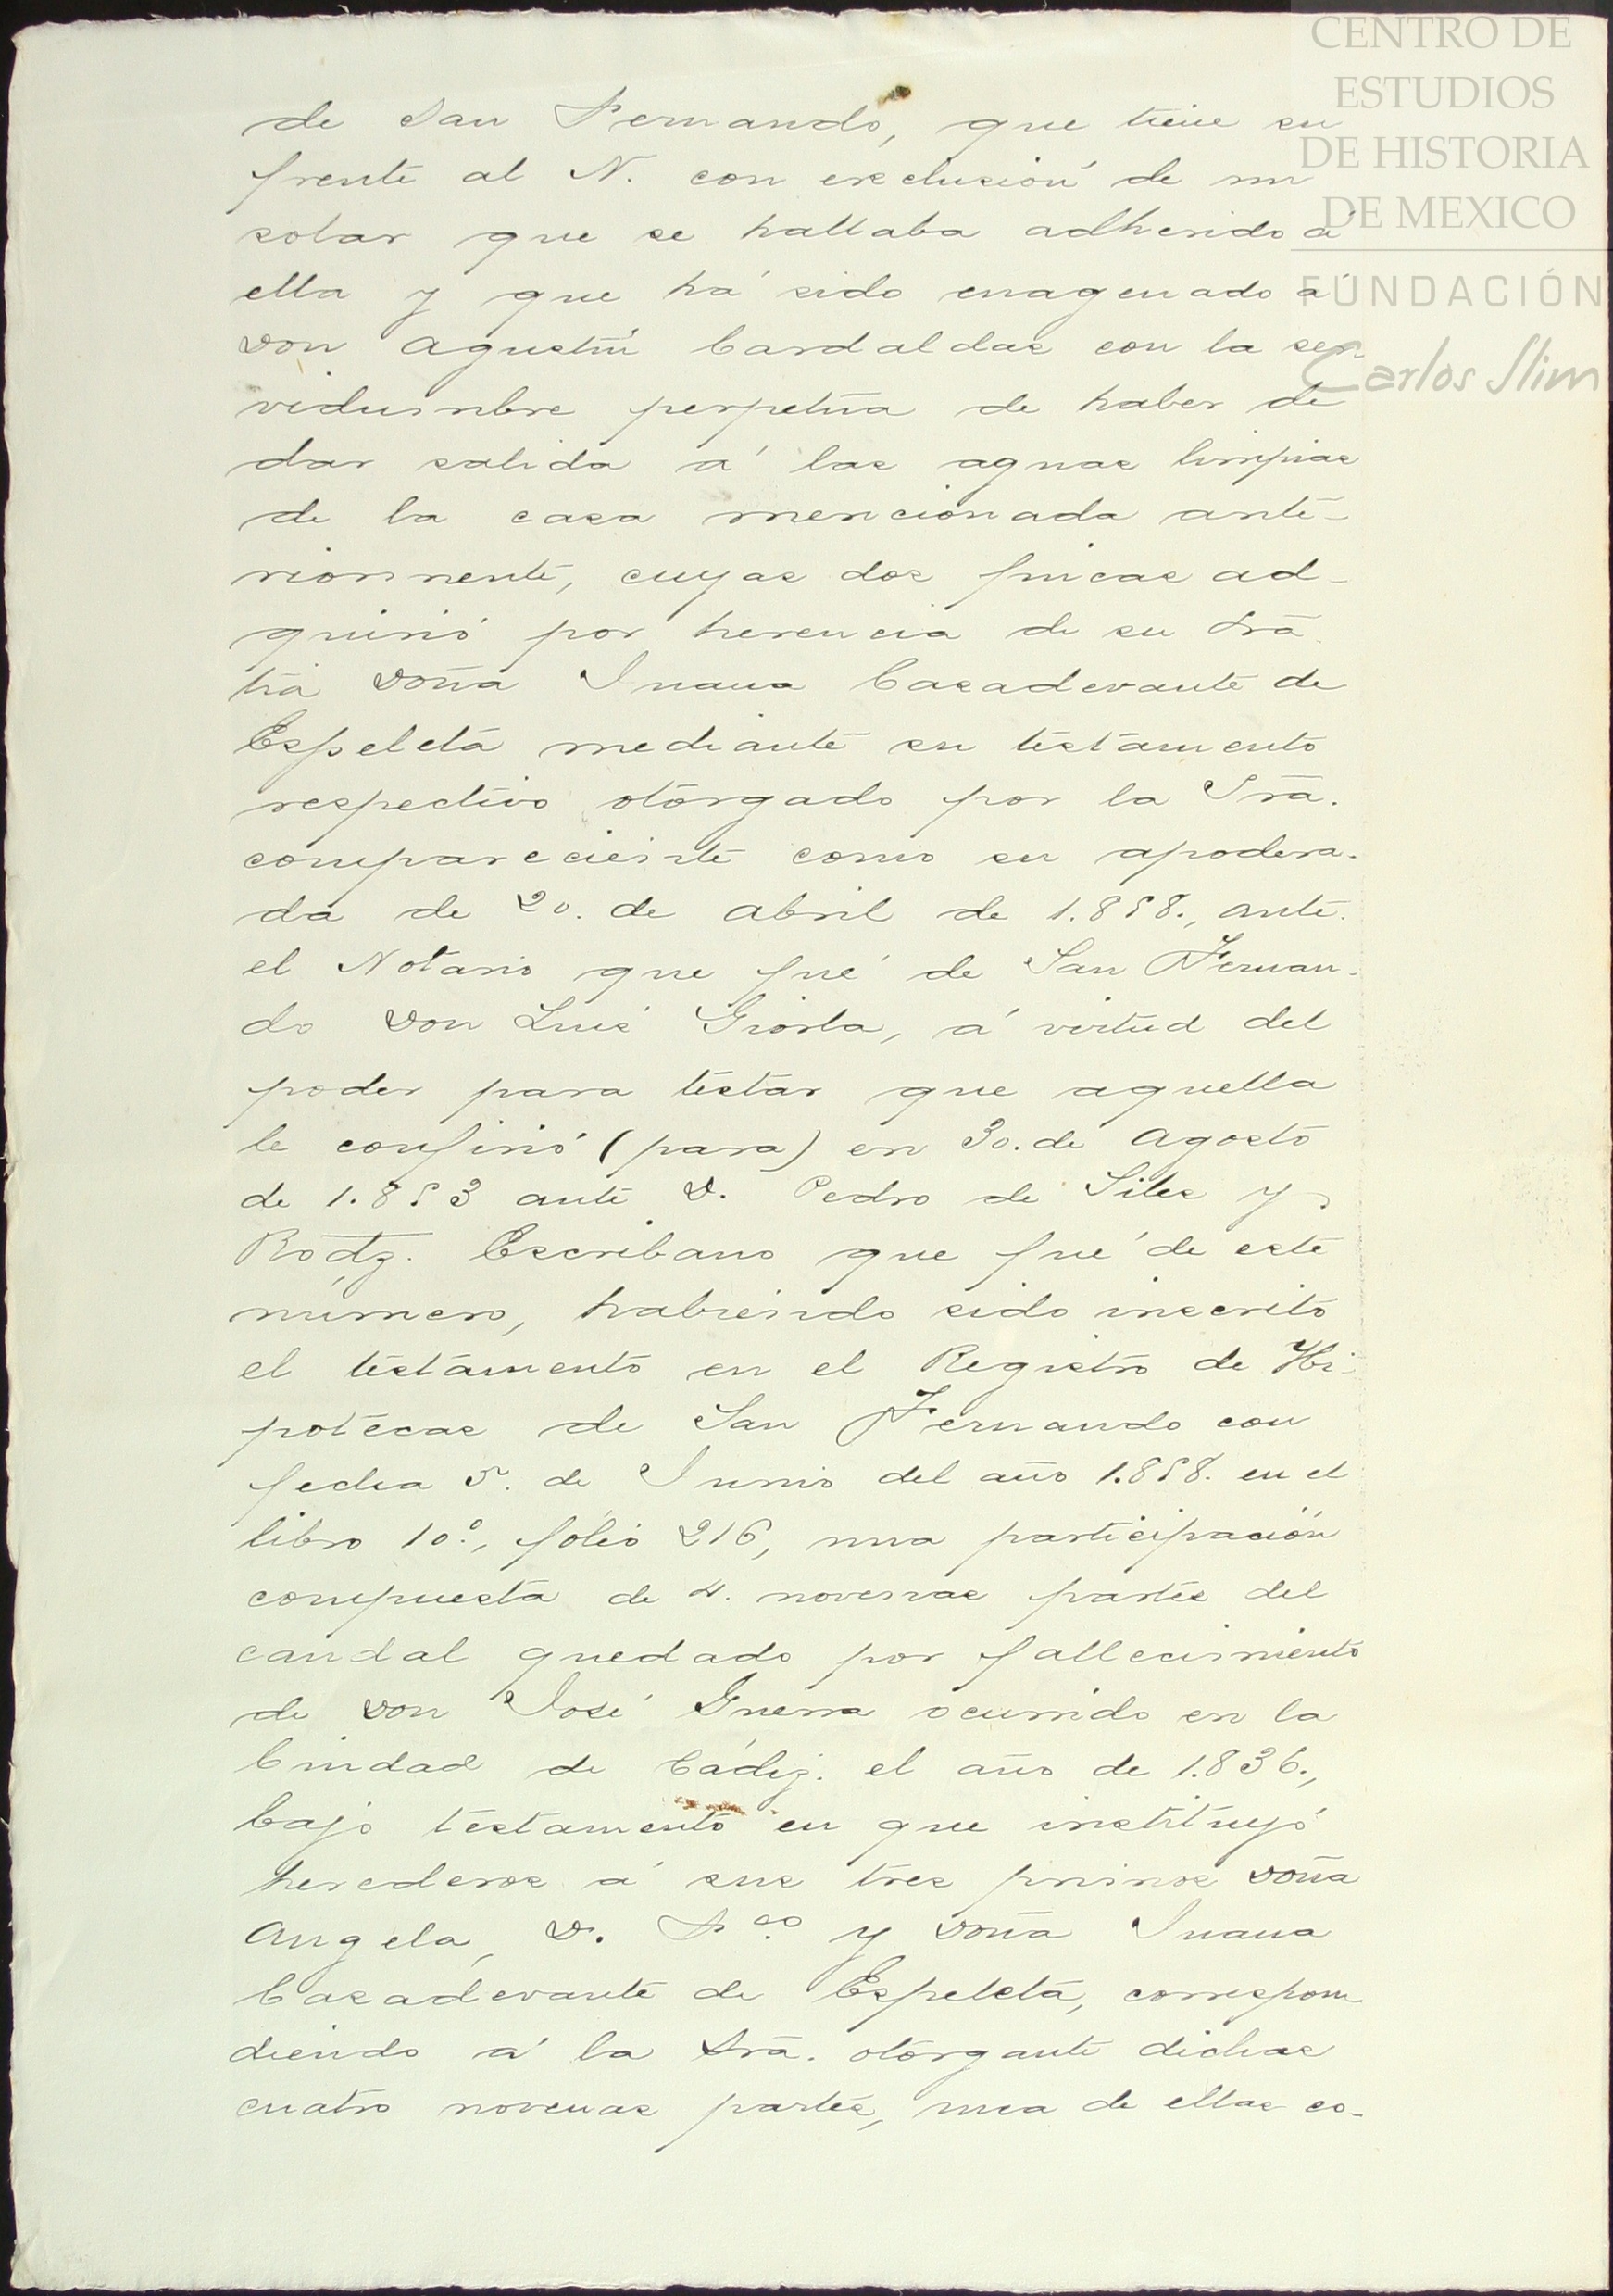 CENTRO DE
ESTUDIOS
DE HISTORIA
DE MEXICO
FUNDACIÓN
Carlos Slim
de San Fernando, que tiene su
frente al N. con exclusión de un
solar que se hallaba adherido á
ella y que há sido enagenado a
Don Agustín Bardaldas con la ser
vidumbre perpetua de haber de
dar salida á las aguas limpias
de la casa mencionada ante-
riormente, cuyas dos fincas ad-
quirió por herencia de su Sra
tia Doña Juana Casadevante de
Espeleta mediante su testamento
respectivo otorgado por la Sra.
compareciente como su apodera-
da de 20. de Abril de 1.858., ante
el Notario que fué de San Fernan-
do Don Luis Giosla, á virtud del
poder para testar que aquella
le confirió (para) en 30. de Agosto
de 1.853 ante D. Pedro de Siles y
Rodz. Escribano que fué de este
número, habiendo sido inscrito
el testamento en el Registro de Hi-
potecas de San Fernando con
fecha 5. de Junio del año 1.858. en el
libro 10º., fólio 216, una participación
compuesta de 4. novenas partes del
caudal quedado por fallecimiento
de Don José Guerra ocurrido en la
Ciudad de Cádiz. el año de 1.836.,
bajo testamento en que instituyó
herederos á sus tres primos Doña
Angela, D. Fco. y Doña Juana
Casadevante de Espeleta, correspon
diendo á la Sra. otorgante dichas
cuatro novenas partes, una de ellas co-